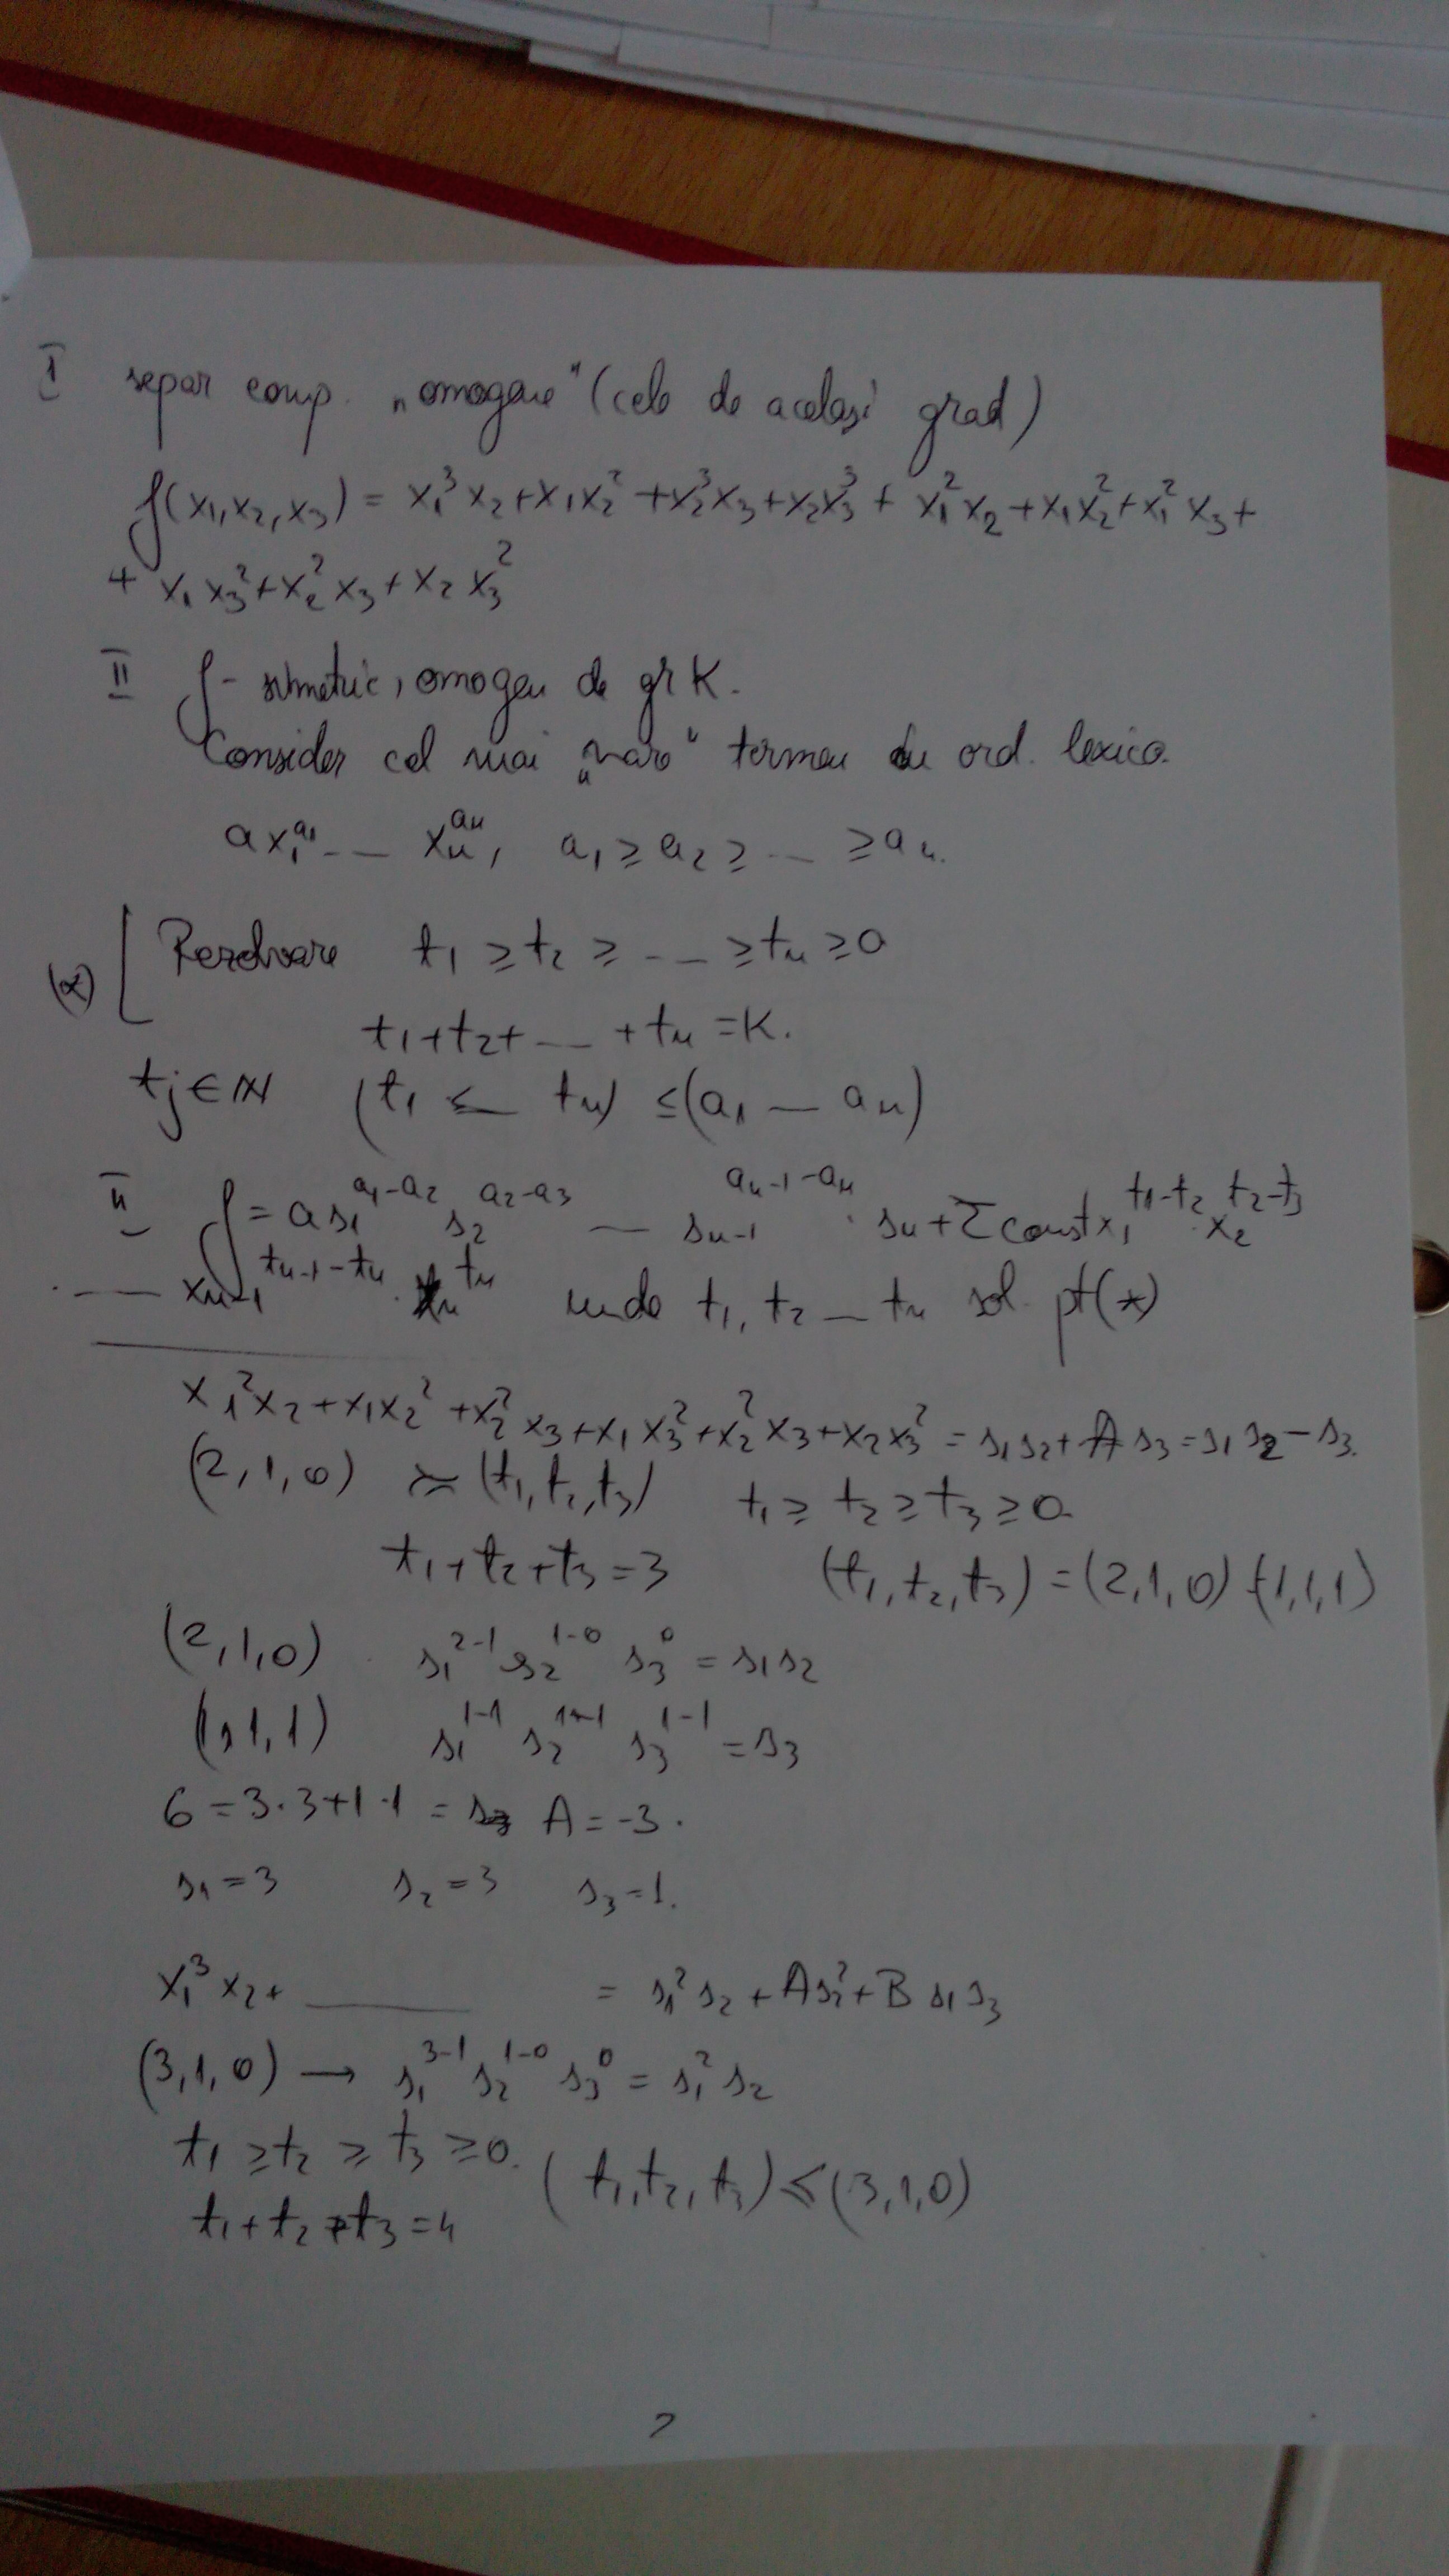 I separ comp. „omogene" (cele de același grad)
f(x₁,x₂,x₃) = x₁³x₂+x₁x₂²+x₂³x₃+x₂x₃³+x₁²x₂+x₁x₂²+x₁²x₃+
+ x₁x₃²+x₂²x₃+x₂x₃²
II f - simetric, omogen de gr K.
Consider cel mai „mare" termen în ord. lexico.
a x₁^a₁ -- xₙ^aₙ, a₁ ≥ a₂ ≥ -- ≥ aₙ.
(*) Rezolvare t₁ ≥ t₂ ≥ -- ≥ tₙ ≥ 0
t₁+t₂+ -- + tₙ = K.
tj ∈ ℕ (t₁ -- tₙ) ≤ (a₁ -- aₙ)
II f = a s₁^(a₁-a₂) s₂^(a₂-a₃) -- sₙ₋₁^(aₙ₋₁-aₙ) · sₙ + Σ const x₁^(t₁-t₂) · x₂^(t₂-t₃)
-- xₙ₋₁^(tₙ₋₁-tₙ) · xₙ^tₙ unde t₁, t₂ -- tₙ sol. pt (*)
x₁²x₂+x₁x₂²+x₂²x₃+x₁x₃²+x₂²x₃+x₂x₃² = s₁s₂+A s₃ = s₁s₂-s₃.
(2,1,0) (t₁,t₂,t₃) t₁ ≥ t₂ ≥ t₃ ≥ 0.
t₁+t₂+t₃=3 (t₁,t₂,t₃) = (2,1,0) (1,1,1)
(2,1,0) s₁^(2-1) s₂^(1-0) s₃^0 = s₁s₂
(1,1,1) s₁^(1-1) s₂^(1-1) s₃^(1-1) = s₃
6 = 3·3+1·1 = A = -3.
s₁ = 3 s₂ = 3 s₃ = 1.
x₁³x₂+ -- = s₁²s₂+As₂²+B s₁s₃
(3,1,0) → s₁^(3-1) s₂^(1-0) s₃^0 = s₁²s₂
t₁ ≥ t₂ ≥ t₃ ≥ 0. (t₁,t₂,t₃) ≤ (3,1,0)
t₁+t₂+t₃=4
2